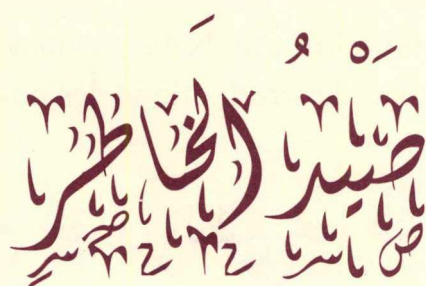 صَيْدُ الخَاطِر